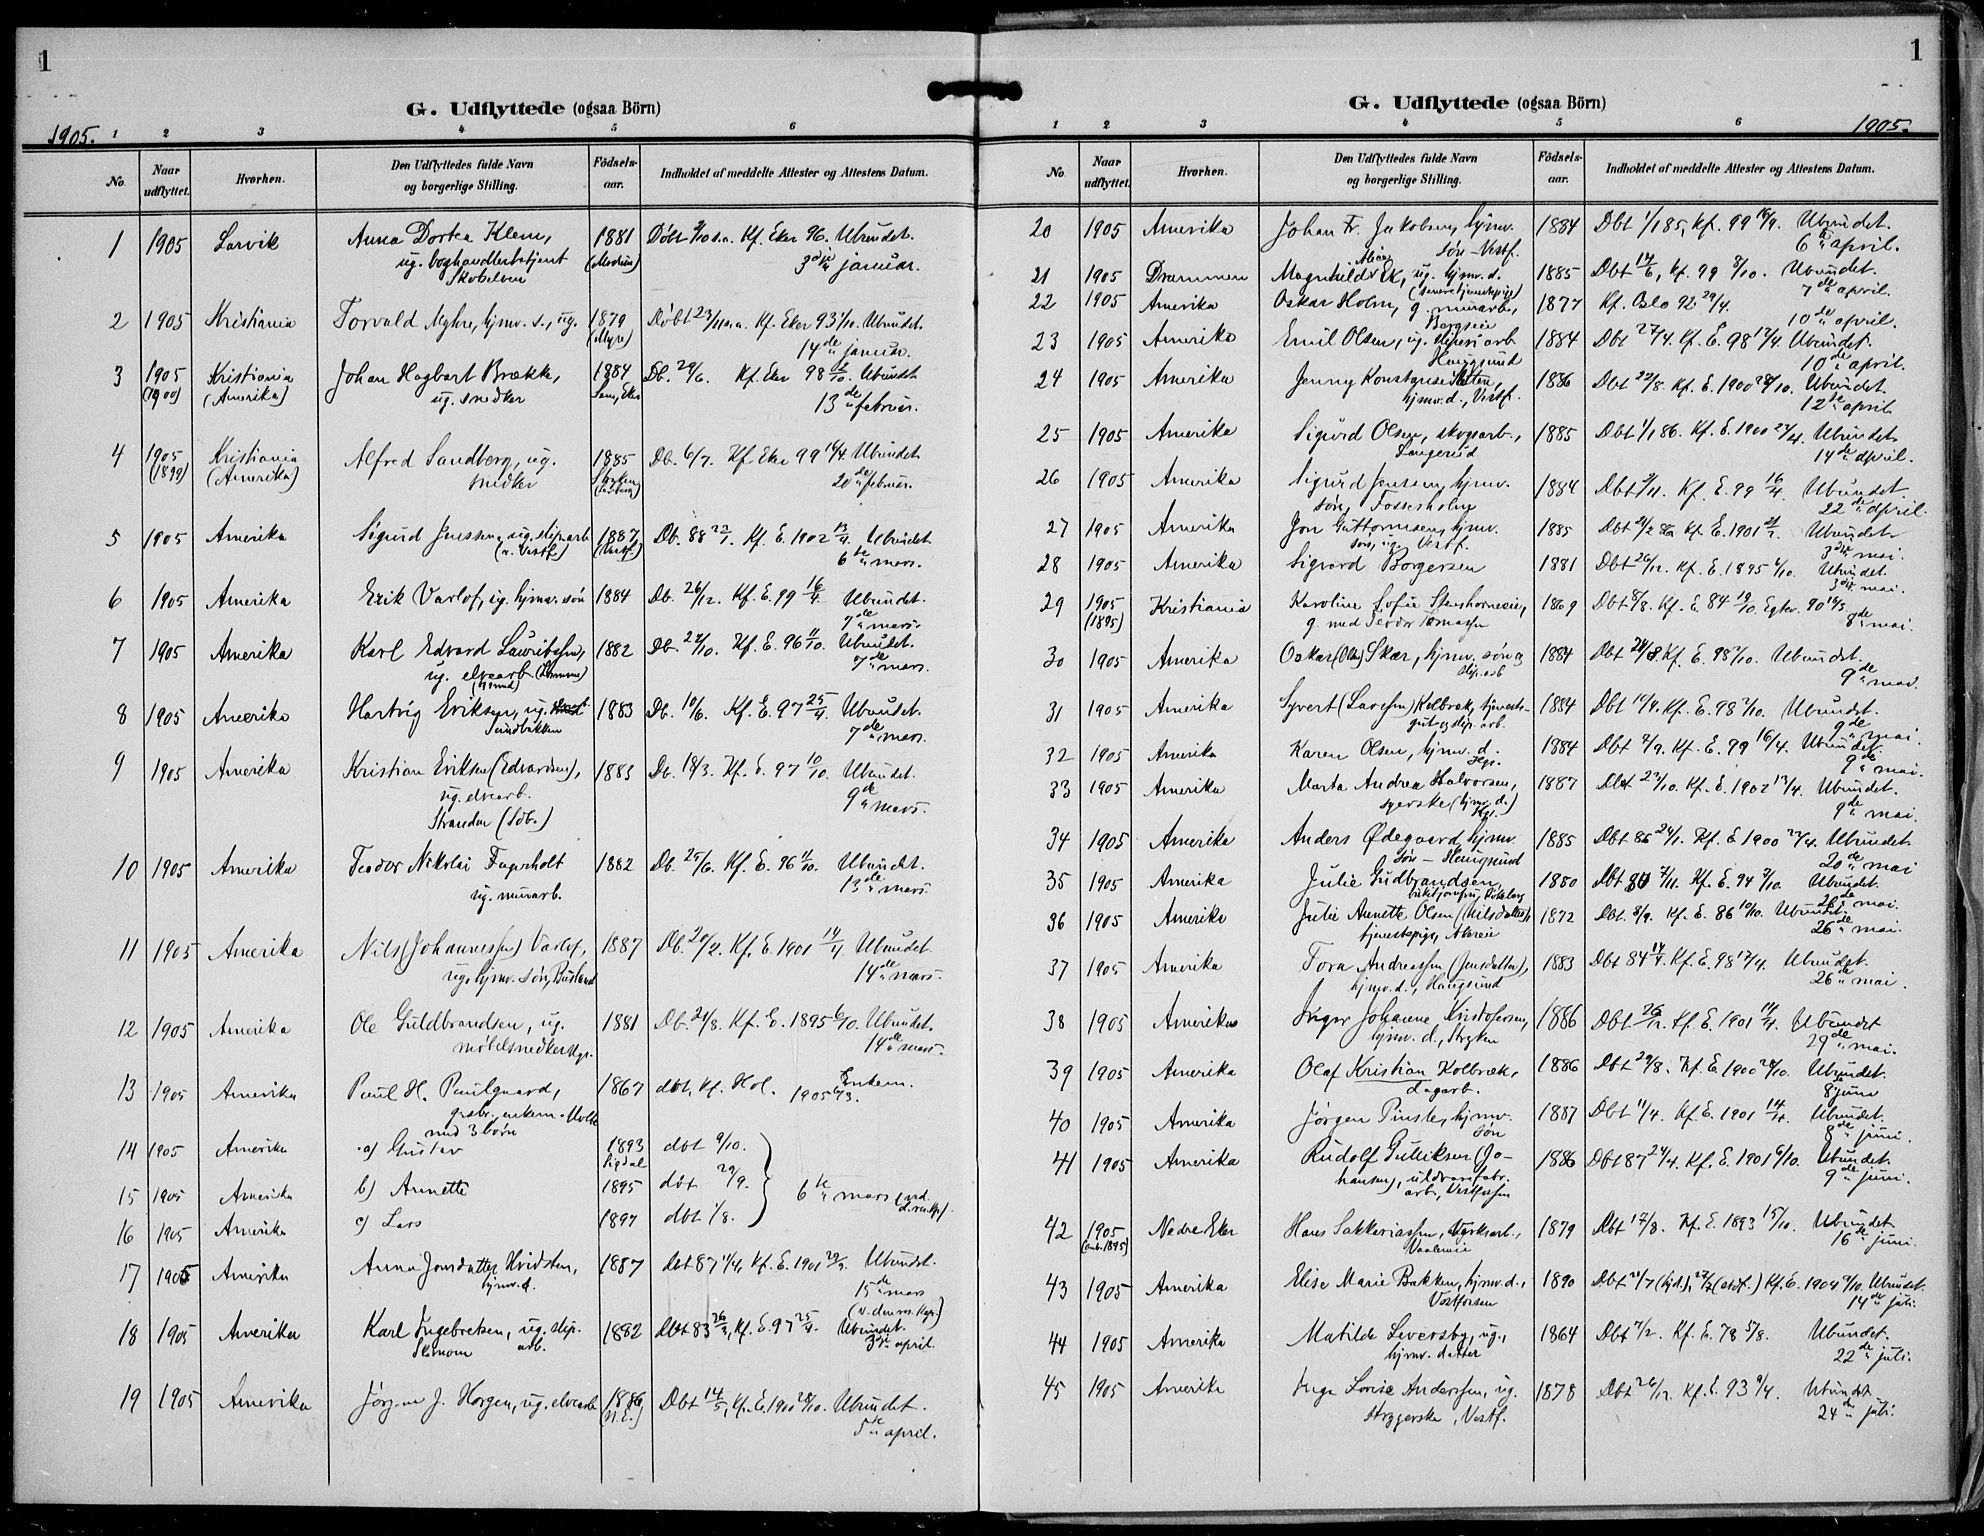 1
G. Udflyttede (ogsaa Börn)
1905. 1 2 3 4 5 6
No. Naar udflyttet. Hvorhen. Den Udflyttedes fulde Navn og borgerlige Stilling. Födsels-aar. Indholdet af meddelte Attester og Attestens Datum.
1 1905 Larvik Anna Dortea Klem, 1881 Kf. Eker 96. Ubundet.
ug. boghandlerbetjent (Modum) 3die januar.
2 1905 Kristiania Torvald Myhre, hjmv. s., ug. 1879 Døbt 23/11 s.a. Kf. Eker 93 1/10. Ubundet.
(Myre) 14de januar.
3 1905 Kristiania Johan Hagbart Brække, 1884 Db. 29/6. Kf. Eker 98 Ubundet
(1900) (Amerika) ug. snedker 13de februar.
4 1905 Kristiania Alfred Sandberg, ug. 1885 Db. 6/7. Kf. Eker 99 16/4 Ubundet
(1899) (Amerika) snedker 20de februar.
5 1905 Amerika Sigurd Jenssen, ug. slip.arb 1887 Db. 88 22/1. Kf. E. 1902 13/4. Ubundet.
(v. Vestf.) (Vestf.) 6te mars.
6 1905 Amerika Erik Varlof, ug. hjmv. søn 1884 Db. 26/12. Kf. E. 99 16/4 Ubundet.
7de mars.
7 1905 Amerika Karl Edvard Lauritssen, 1882 Db. 22/10. Kf. E. 96 11/10. Ubundet.
ug. elvearb. 7de mars.
8 1905 Amerika Hartvig Eriksen, ug. 1883 Db. 10/6. Kf. E. 97 25/4. Ubundet.
Sundbakken 7de mars.
9 1905 Amerika Kristian Eriksen (Edvardsen), 1883 Db. 18/3. Kf. E. 97 10/10. Ubundet.
ug. elvearb. 9de mars.
Stranden (Sdb.)
10 1905 Amerika Teodor Nikolai Fagerholt 1882 Db. 25/6. Kf. E. 96 11/10. Ubundet.
ug. murarb. 13de mars.
11 1905 Amerika Nils (Johannessen) Varlof, 1887 Db. 20/2. Kf. E. 1901 14/4 Ubundet.
ug. hjmv. søn, 14de mars.
12 1905 Amerika Ole Guldbrandsen, ug. 1881 Db. 24/8. Kf. E. 1895 6/10. Ubundet.
møbelsnedker 14de mars.
13 1905 Amerika Paul H. Paulgaard, 1867 dbt, Kf. Hol. 1905 6/3. Enkem.
grbr., enkem.
med 3 børn
14 1905 Amerika a) Gustav 1893 dbt 9/10.
Sigdal
15 1905 Amerika b) Annette 1895 døt 29/9. 6te mars
16 1905 Amerika c) Lars 1897 dbt 1/8.
17 1905 Amerika Anna Jonsdatter Hvidsten, 1887 dbt 87 11/4, Kf. E. 1901 Ubundet.
hjmv. d. 15de mars
18 1905 Amerika Karl Ingebretsen, ug. slip. 1882 Dbt 83 26/3, Kf. E. 97 25/4. Ubundet.
arb. april.
19 1905 Amerika Jørgen J. Horgen, ug. elvearb 1886 Dbt 14/5, Kf. E. 1900 28/10. Ubundet.
(N.E.) 5te april.
1
G. Udflyttede (ogsaa Börn)
1 2 3 4 5 6 1905.
No. Naar udflyttet. Hvorhen. Den Udflyttedes fulde Navn og borgerlige Stilling. Födsels-aar. Indholdet af meddelte Attester og Attestens Datum.
20 1905 Amerika Johan Fr. Jakobsen, hjmv. 1884 Dbt 1/1 85, Kf. 99 Ubundet.
søn - Vestf. 6te april.
21 1905 Drammen Magnhild Ek, ug. hjmv. d. 1885 Dbt 14/6, Kf. 99 8/10. Ubundet.
(senere tjenestepige) 7de april.
22 1905 Amerika Oskar Holm, g. murarb., 1877 Kf. Oslo 92 29/4.
10de april.
23 1905 Amerika Emil Olsen, ug. sliperiarb 1884 Dbt 27/4. Kf. E. 98 17/4. Ubundet.
Haugsund 10de april.
24 1905 Amerika Jenny Konstanse 1886 Dbt 22/8. Kf. E. 1900 28/10. Ubundet.
hjmv. d., Vestf. 12te april
25 1905 Amerika Sigurd Olsen, skogsarb., 1885 Dbt 1/1 86. Kf. E. 1900 Ubundet.
Langerud 14de april.
26 1905 Amerika Sigurd Jenssen, hjmv. 1884 Dbt 9/11. Kf. E. 99 16/4 Ubundet
søn, Fossesholm 22de april.
27 1905 Amerika Jon Guttormsen, hjmv. 1885 Kf. E. 1901 Ubundet.
søn, ug., Vestf. 3die mai.
28 1905 Amerika Sigvard Borgersen 1881 Dbt 26/12. Kf. E. 1895 6/10. Ubundet.
3die mai.
29 1905 Kristiania Karoline Sofie 1869 Dbt 8/8. Kf. E. 84 19/10.
(1895) g. med Teodor Tomassen 8de mai.
30 1905 Amerika Oskar (Olsen) Skær, hjmv. søn og 1884 Kf. E. 98 Ubundet.
slip.arb 9de mai.
31 1905 Amerika Syvert (Larssen) Kolbræk, tjeneste- 1884 Dbt 10/4. Kf. E. 98 2/10. Ubundet.
gut og slip. arb. 9de mai.
32 1905 Amerika Karen Olsen, hjmv. d. 1884 Dbt 7/9. Kf. E. 99 16/4. Ubundet.
9de mai.
33 1905 Amerika Marta Andrea Halvorsen, 1887 Dbt 23/10. Kf. E. 1902 13/4. Ubundet.
syerske (hjmv. d.) 9de mai.
34 1905 Amerika Anders Ødegaard, hjmv. 1885 Dbt 86 24/1. Kf. E. 1900 22/4. Ubundet
søn - Haugsund 20de mai
35 1905 Amerika Julie Gudbrandsen, 1880 Dbt 7/11. Kf. E. 94 Ubundet.
mai.
36 1905 Amerika Julie Annette Olsen (Nilsdatter), 1872 Dbt. 8/9. Kf. E. 86 10/10. Ubundet.
tjenestepige, 26de mai.
37 1905 Amerika Tora Andreassen (Jensdatter), 1883 Dbt 84 14/4. Kf. E. 98 17/4. Ubundet.
hjmv. d., Haugsund 26de mai.
38 1905 Amerika Inger Johanne Kristofersen, 1886 Dbt 26/12. Kf. E. 1901 14/4. Ubundet
hjmv. d., Stryken 29de mai.
39 1905 Amerika Olaf Kristian Kolbræk, 1886 Dbt 29/8. Kf. E. 1900 28/10. Ubundet.
dagarb. 8de juni
40 1905 Amerika Jørgen hjmv. 1887 Dbt 11/4. Kf. E. 1901 14/4. Ubundet.
søn 8de juni.
41 1905 Amerika Rudolf Gulliksen (Jo- 1886 Dbt 87 24/4. Kf. E. 1901 6/10. Ubundet.
hansen), uldvarefabr. 9de juni.
arb., Vestfossen
42 1905 Nedre Eker Hans Sakkeriassen, 1879 Dbt 17/8. Kf. E. 1893 15/10. Ubundet
16de juni.
43 1905 Amerika Elise Marie Bakken, hjmv. d., 1890 Kf. E. 1904 Ubundet.
Vestfossen 14de juli.
44 1905 Amerika Matilde Leversby, ug., 1864 Dbt 7/2. Kf. E. 78 5/8. Ubundet.
hjmv. datter 22de juli.
45 1905 Amerika Inga Lovise Anderssen, ug. 1878 Dbt 26/12. Kf. E. 93 9/4. Ubundet
strygerske, Vestf. 24de juli.